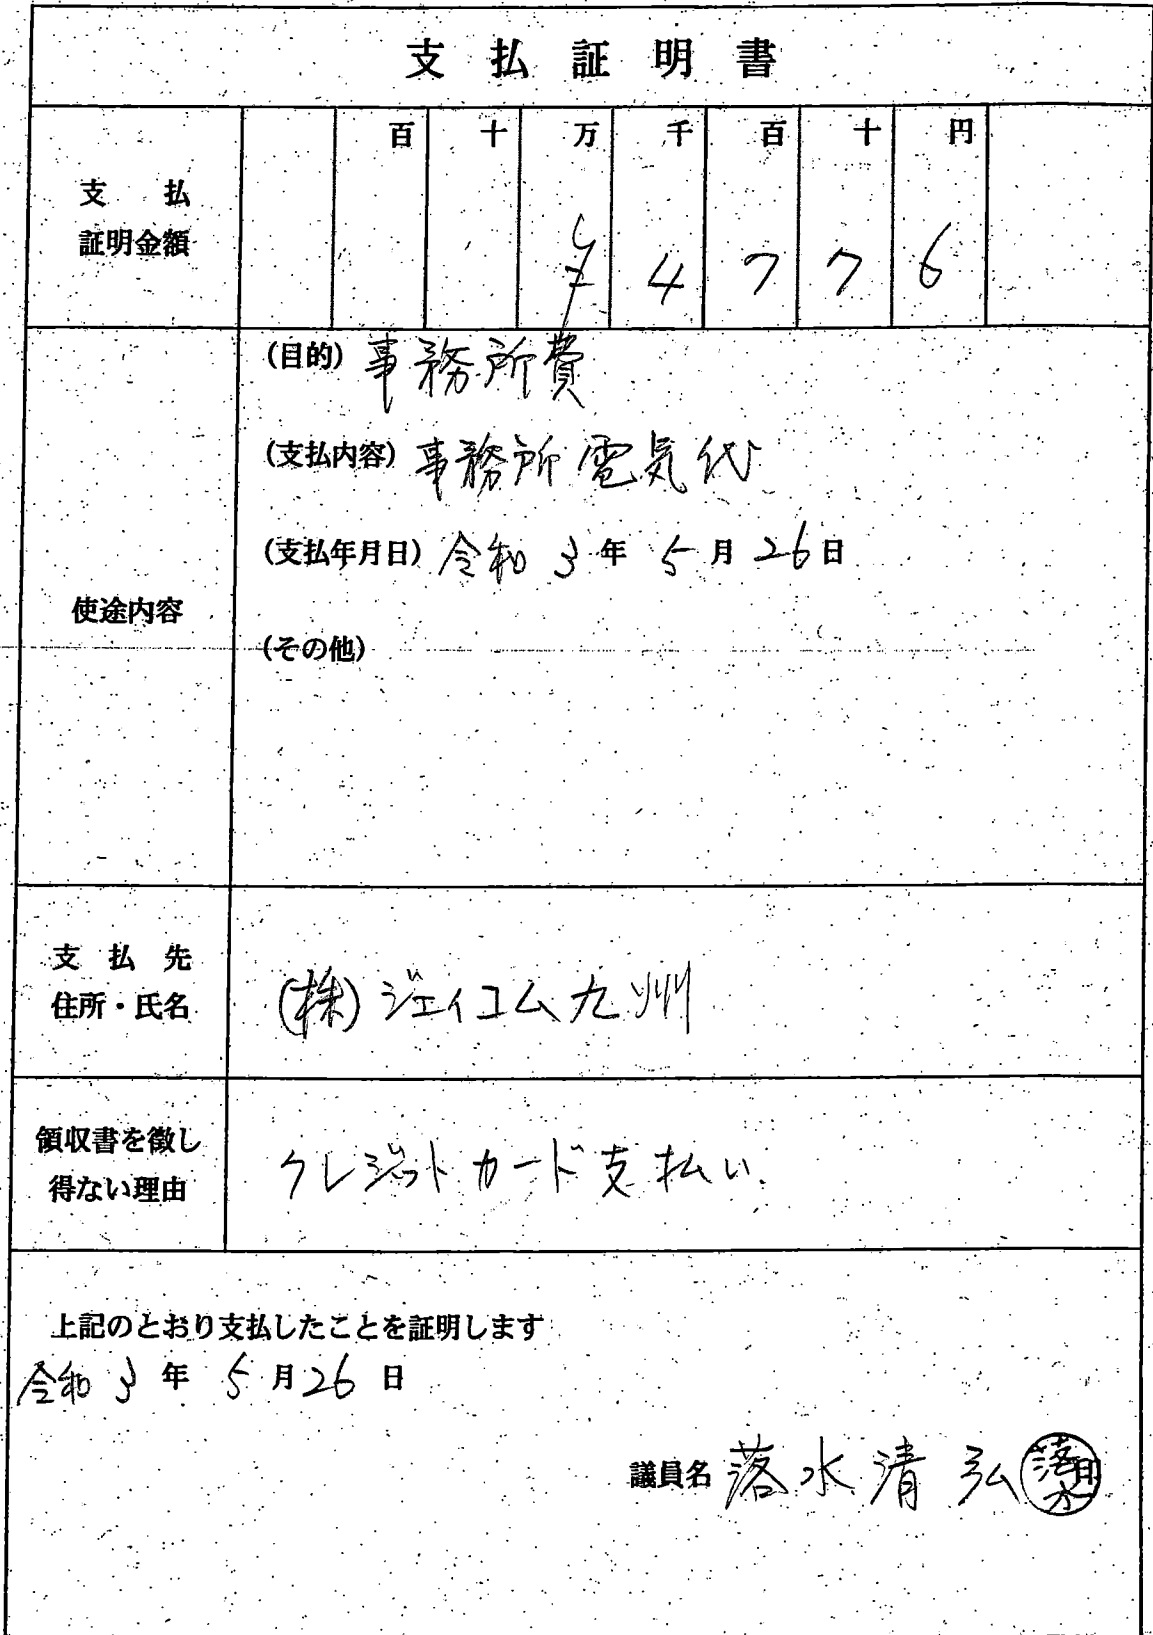 支払証明書
百 十 万 千 百 十 円
支払
証明金額
¥ 4 7 7 6
(目的) 事務所費
(支払内容) 事務所電気代
(支払年月日) 令和 3 年 5 月 26 日
使途内容
(その他)
支払先
住所・氏名
(株)ジェイコム九州
領収書を徴し
得ない理由
クレジットカード支払い.
上記のとおり支払したことを証明します
令和 3 年 5 月 26 日
議員名 落水清弘